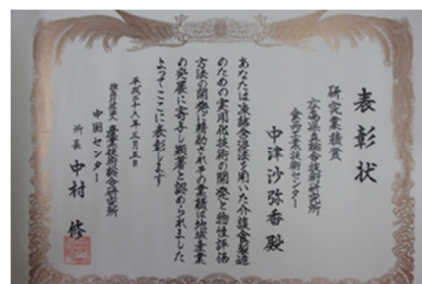 表彰状
研究業績賞
広島県立総合技術研究所
食品工業技術センター
中津沙弥香 殿
あなたは凍結含浸法を用いた介護食製造
のための実用化技術の開発と物性評価
方法の開発に精励されその業績は地域産業
の発展に寄与し顕著と認められました
よってここに表彰します
平成二十六年三月五日
独立行政法人 産業技術総合研究所
中国センター
所長 中村 修